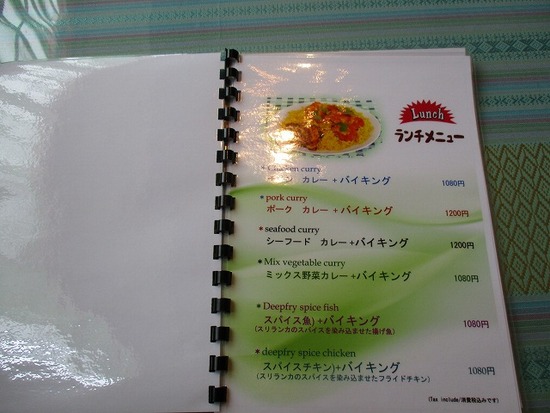 Lunch
ランチメニュー
*Chicken curry
カレー+バイキング 1080円
*pork curry
ポーク カレー+バイキング 1200円
*seafood curry
シーフード カレー+バイキング 1200円
*Mix vegetable curry
ミックス野菜カレー+バイキング 1080円
*Deepfry spice fish
スパイス魚)+バイキング 1080円
(スリランカのスパイスを染み込ませた揚げ魚)
*deepfry spice chicken
スパイスチキン)+バイキング 1080円
(スリランカのスパイスを染み込ませたフライドチキン)
(Tax include/消費税込みです)